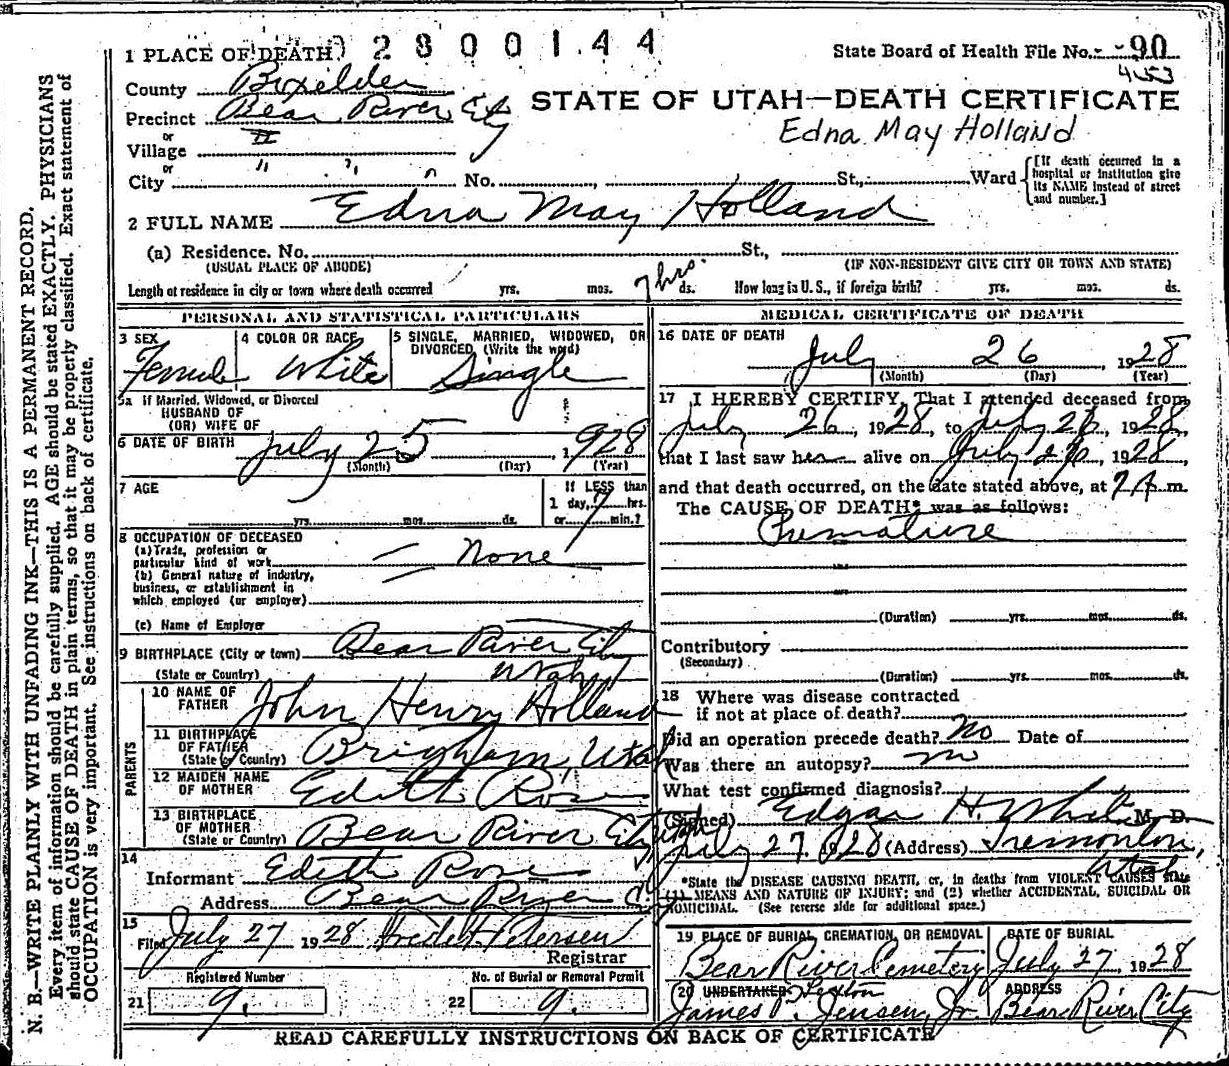 N. B.—WRITE PLAINLY WITH UNFADING INK—THIS IS A PERMANENT RECORD.
Every item of information should be carefully supplied. AGE should be stated EXACTLY. PHYSICIANS
should state CAUSE OF DEATH in plain terms, so that it may be properly classified. Exact statement of
OCCUPATION is very important. See instructions on back of certificate.
1 PLACE OF DEATH 2800144 State Board of Health File No. 90
453
County Boxelder
STATE OF UTAH—DEATH CERTIFICATE
Precinct Bear River City
Edna May Holland
or
Village
or
City " " " No. St., Ward
[If death occurred in a
hospital or institution give
its NAME instead of street
and number.]
2 FULL NAME Edna May Holland
(a) Residence. No. St.,
(USUAL PLACE OF ABODE) (IF NON-RESIDENT GIVE CITY OR TOWN AND STATE)
Length of residence in city or town where death occurred yrs. mos. 7 hrs. ds. How long in U. S., if foreign birth? yrs. mos. ds.
PERSONAL AND STATISTICAL PARTICULARS
3 SEX
Female
4 COLOR OR RACE
White
5 SINGLE, MARRIED, WIDOWED, OR
DIVORCED (Write the word)
Single
5a If Married, Widowed, or Divorced
HUSBAND OF
(OR) WIFE OF
6 DATE OF BIRTH July 25, 1928
(Month) (Day) (Year)
7 AGE
yrs. mos. ds.
If LESS than
1 day, 7 hrs.
or min.?
8 OCCUPATION OF DECEASED
(a) Trade, profession or
particular kind of work None
(b) General nature of industry,
business, or establishment in
which employed (or employer)
(c) Name of Employer
9 BIRTHPLACE (City or town) Bear River City
(State or Country) Utah
PARENTS
10 NAME OF
FATHER John Henry Holland
11 BIRTHPLACE
OF FATHER
(State or Country) Brigham, Utah
12 MAIDEN NAME
OF MOTHER Edith Rose
13 BIRTHPLACE
OF MOTHER
(State or Country) Bear River City Utah
14
Informant Edith Rose
Address Bear River C.
15
Filed July 27 1928 Petersen
Registrar
Registered Number
21 9.
No. of Burial or Removal Permit
22 9.
MEDICAL CERTIFICATE OF DEATH
16 DATE OF DEATH
July 26, 1928
(Month) (Day) (Year)
17 I HEREBY CERTIFY, That I attended deceased from
July 26, 1928, to July 26, 1928,
that I last saw her alive on July 26, 1928,
and that death occurred, on the date stated above, at 7 A m.
The CAUSE OF DEATH* was as follows:
Premature
(Duration) yrs. mos. ds.
Contributory
(Secondary)
(Duration) yrs. mos. ds.
18 Where was disease contracted
if not at place of death?
Did an operation precede death? No Date of
Was there an autopsy? no
What test confirmed diagnosis?
(Signed) Edgar H. White M. D.
July 27. 1928 (Address) Tremonton,
Utah
*State the DISEASE CAUSING DEATH, or, in deaths from VIOLENT CAUSES state
(1) MEANS AND NATURE OF INJURY; and (2) whether ACCIDENTAL, SUICIDAL OR
HOMICIDAL. (See reverse side for additional space.)
19 PLACE OF BURIAL, CREMATION, OR REMOVAL
Bear River Cemetery
DATE OF BURIAL
July 27 1928
20 UNDERTAKER Sexton
James P. Jensen, Jr.
ADDRESS
Bear River City
READ CAREFULLY INSTRUCTIONS ON BACK OF CERTIFICATE